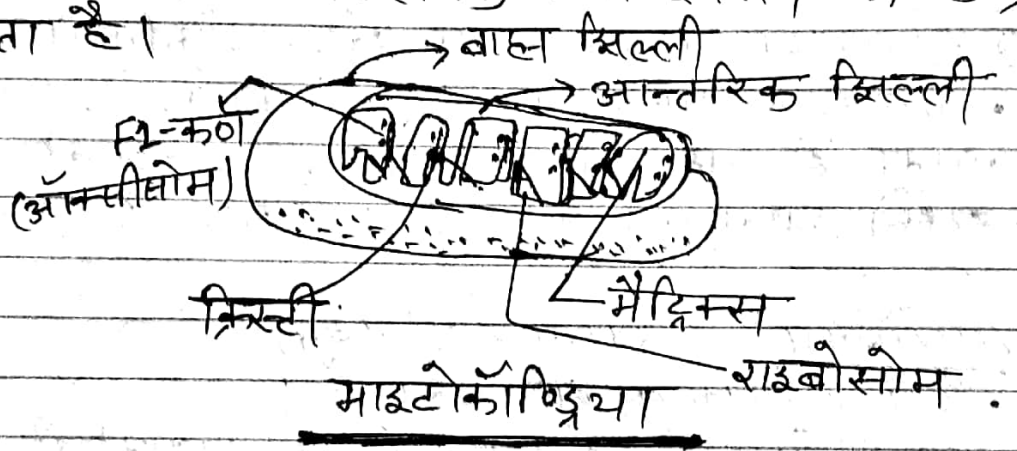 ता है।
बाह्य झिल्ली
आन्तरिक झिल्ली
F1-कण
(ऑक्सीसोम)
क्रिस्टी
मैट्रिक्स
राइबोसोम
माइटोकॉण्ड्रिया